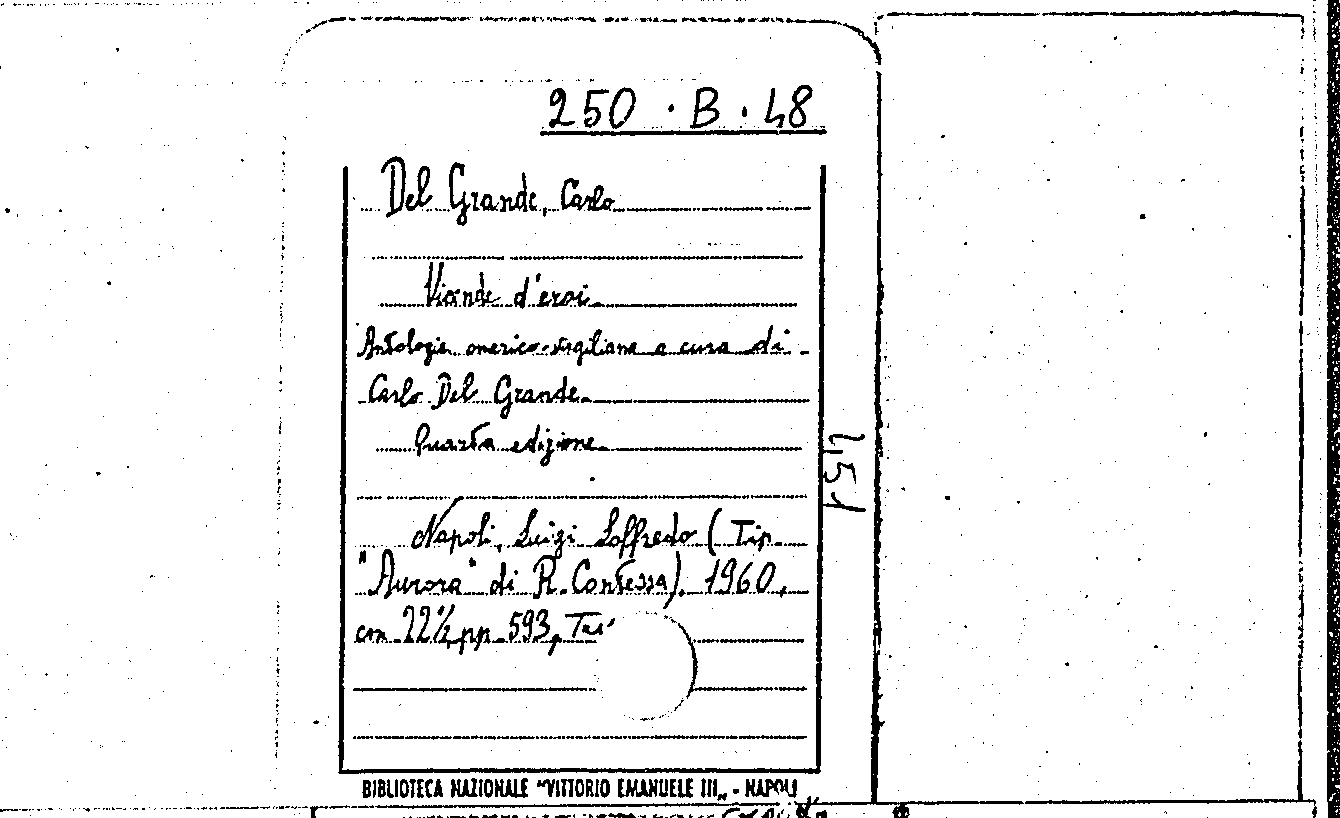 250 · B · 48
Del Grande, Carlo
Viande d'eroi
Antologia omerico-virgiliana a cura di
Carlo Del Grande.
Quarta edizione
Napoli, Luigi Loffredo (Tip.
"Aurora" di R. Contessa). 1960,
cm 22½, pp. 593,
451
BIBLIOTECA NAZIONALE "VITTORIO EMANUELE III„ - NAPOLI